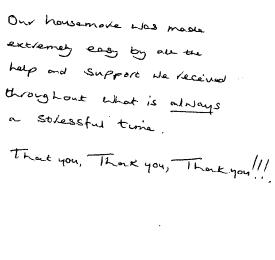 Our housemove was made
extremely easy by all the
help and support we received
throughout what is always
a stressful time.
Thank you, Thank you, Thank you!!!